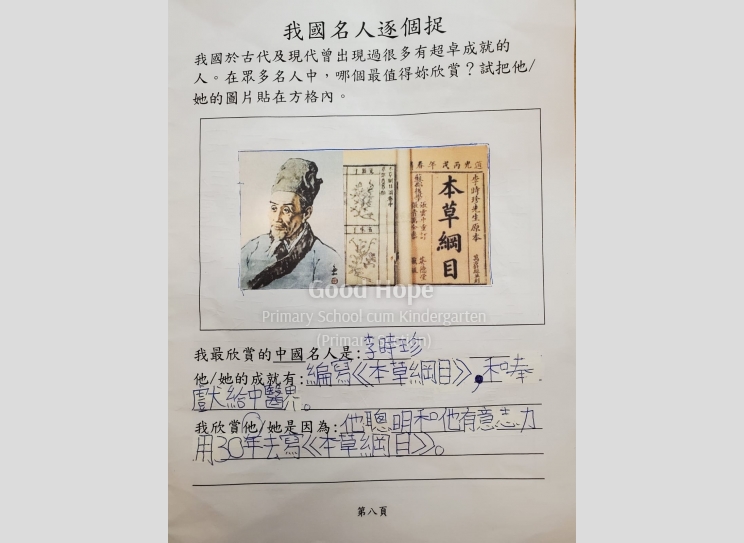 我國名人逐個捉
我國於古代及現代曾出現過很多有超卓成就的
人。在眾多名人中，哪個最值得妳欣賞？試把他/
她的圖片貼在方格內。
李時珍先生原本
本草綱目
Good Hope
Primary School cum Kindergarten
我最欣賞的中國名人是:李時珍
他/她的成就有:編寫《本草綱目》,和奉
獻給中醫界。
我欣賞他/她是因為:他聰明和他有意志力
用30年去寫《本草綱目》。
第八頁